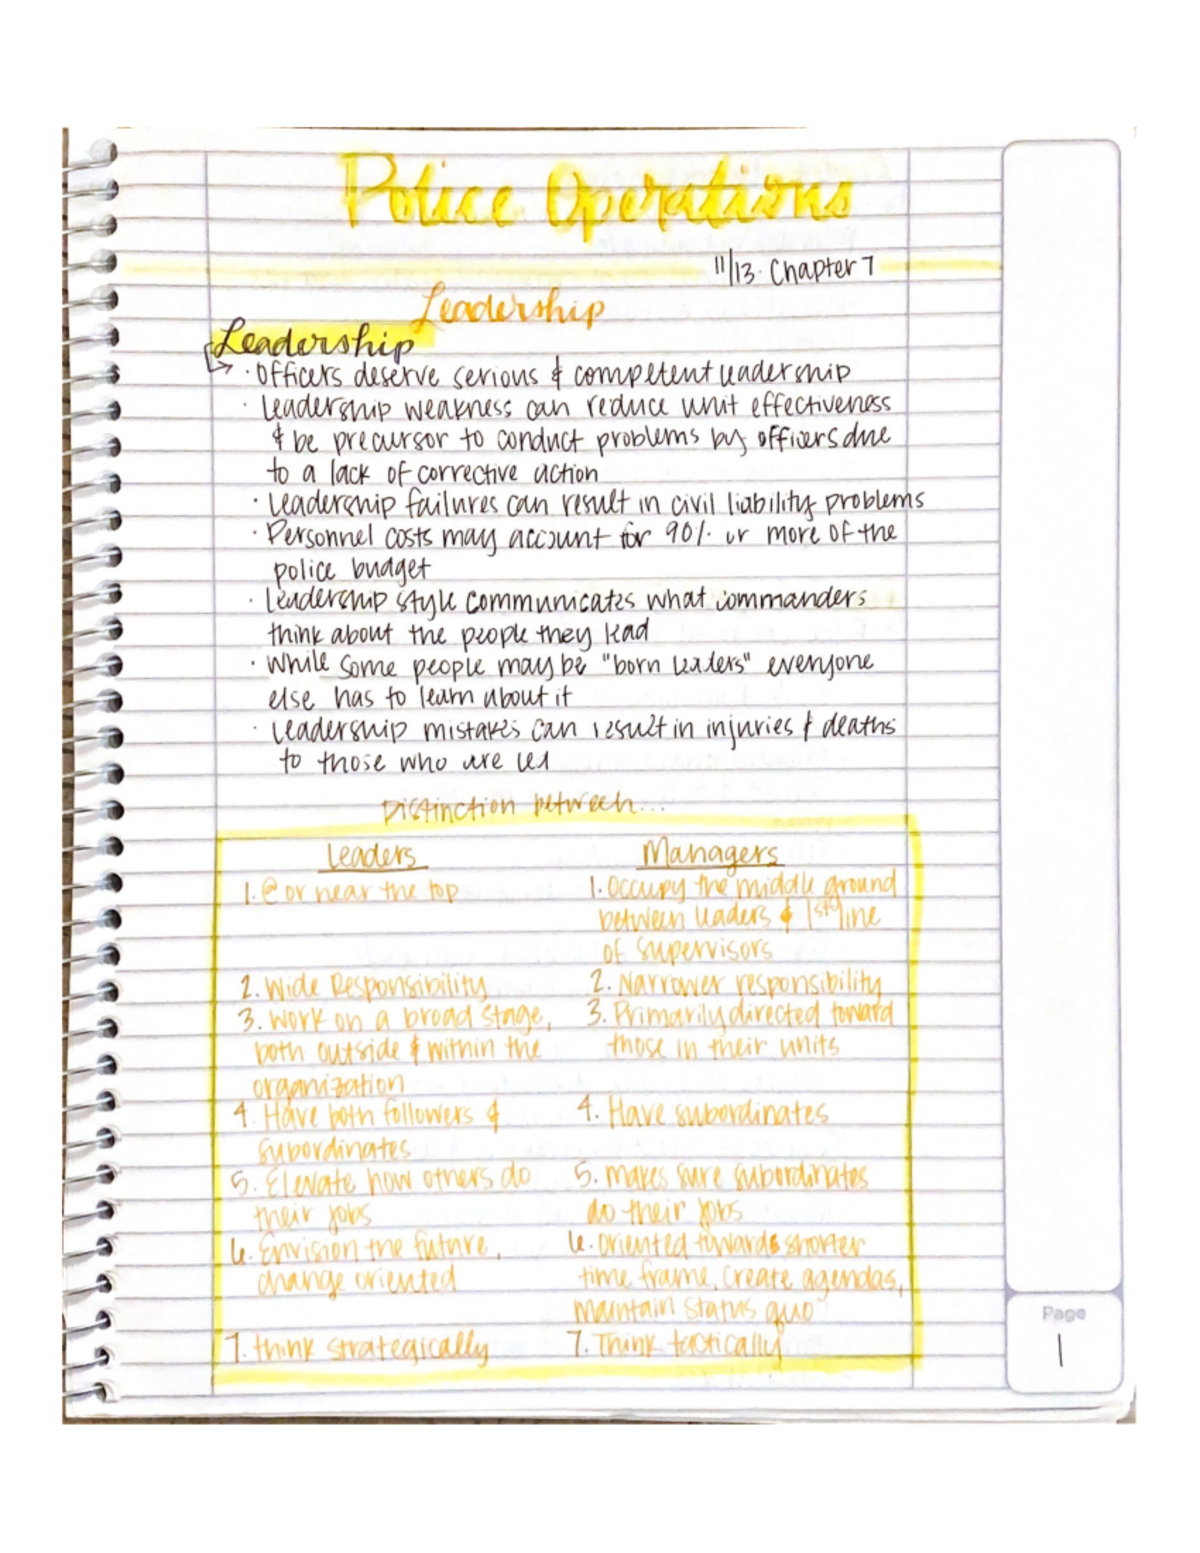 Police Operations
11/13. Chapter 7
Leadership
Leadership
→ · Officers deserve serious & competent leadership
· Leadership weakness can reduce unit effectiveness
& be precursor to conduct problems by officers due
to a lack of corrective action
· Leadership failures can result in civil liability problems
· Personnel costs may account for 90% or more of the
police budget
· Leadership style communicates what commanders
think about the people they lead
· While some people may be "born leaders" everyone
else has to learn about it
· Leadership mistakes can result in injuries & deaths
to those who are led
Distinction between...
Leaders
1. @ or near the top
2. Wide Responsibility
3. Work on a broad stage,
both outside & within the
organization
4. Have both followers &
subordinates
5. Elevate how others do
their jobs
6. Envision the future,
change oriented
7. think strategically
Managers
1. Occupy the middle ground
between leaders & 1st line
of supervisors
2. Narrower responsibility
3. Primarily directed toward
those in their units
4. Have subordinates
5. Makes sure subordinates
do their jobs
6. Oriented towards shorter
time frame, create agendas,
maintain status quo
7. Think tactically
Page
1